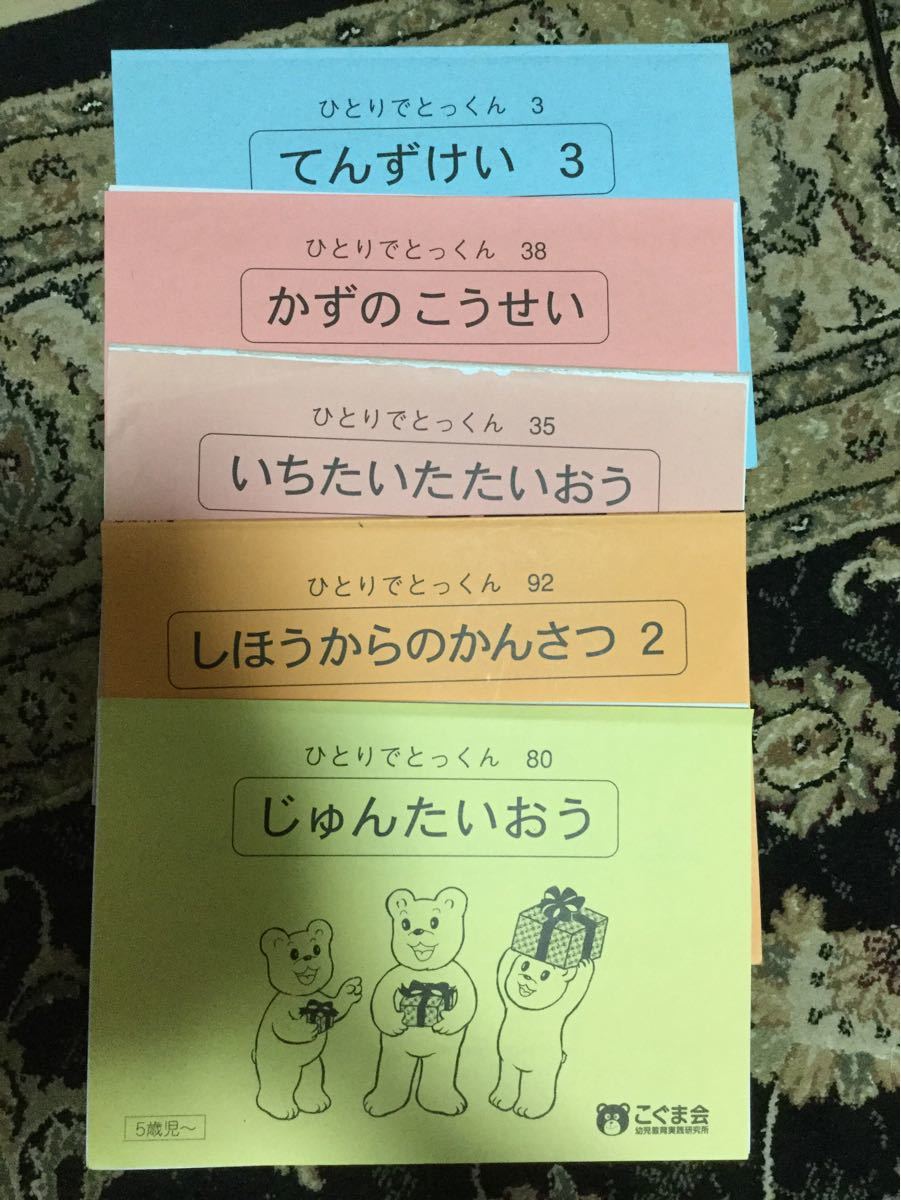 ひとりでとっくん 3
てんずけい 3
ひとりでとっくん 38
かずのこうせい
ひとりでとっくん 35
いちたいたたいおう
ひとりでとっくん 92
しほうからのかんさつ 2
ひとりでとっくん 80
じゅんたいおう
5歳児〜
こぐま会
幼児教育実践研究所